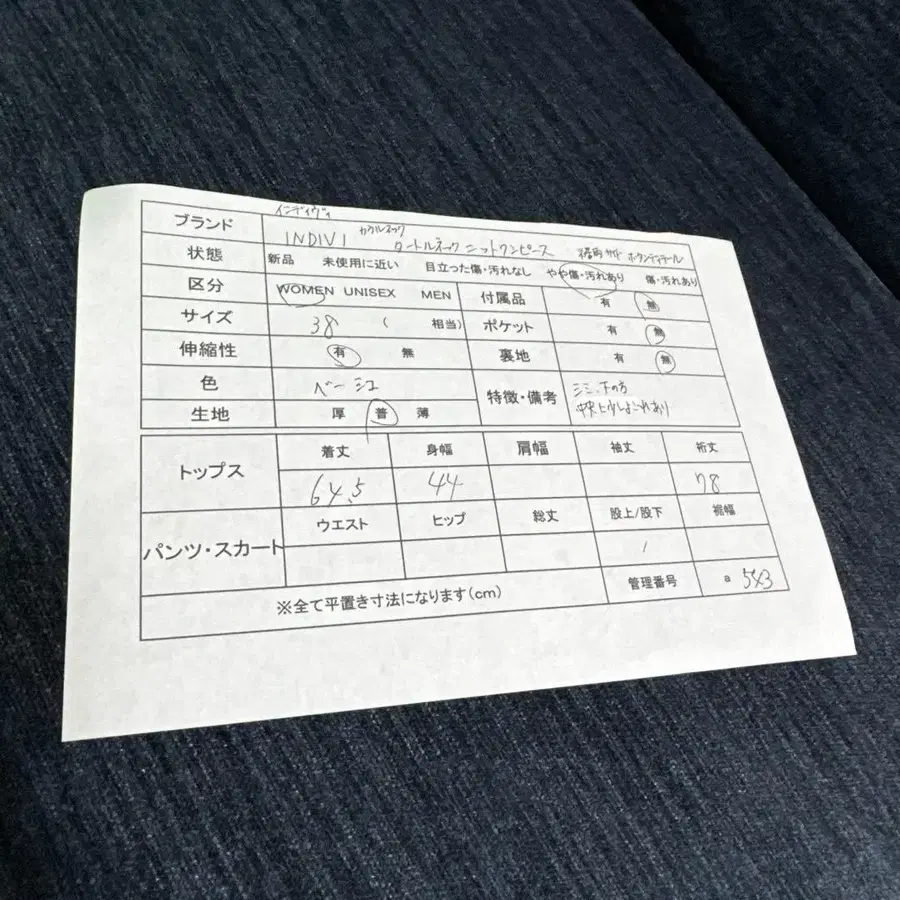 インディヴィ
ブランド INDIVI カウルネック タートルネック ニットワンピース ボタンディテール
状態 新品 未使用に近い 目立った傷・汚れなし やや傷・汚れあり 傷・汚れあり
区分 WOMEN UNISEX MEN 付属品 有 無
サイズ 38 ( 相当) ポケット 有 無
伸縮性 有 無 裏地 有 無
色 ベージュ 特徴・備考 シミ、下の方
中央に少しよごれあり
生地 厚 普 薄
トップス 着丈 身幅 肩幅 袖丈 裄丈
64.5 44 78
パンツ・スカート ウエスト ヒップ 総丈 股上/股下 裾幅
/
※全て平置き寸法になります(cm) 管理番号 a 543